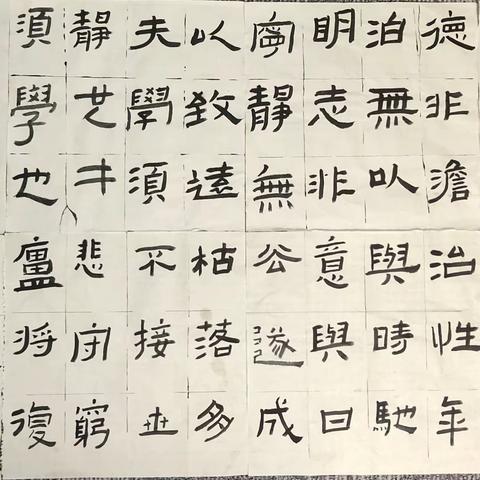 德非澹
泊無以
明志非
寧靜無
以致遠
夫學須
靜也才
須學也
治性年
與時馳
意與日
公遂成
枯落多
不接世
悲守窮
廬將復